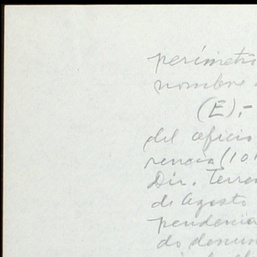 perímetro
nombre
(E).-
del oficio
rencia (10
Dir. Terre
de Agosto
pendencia
do denun